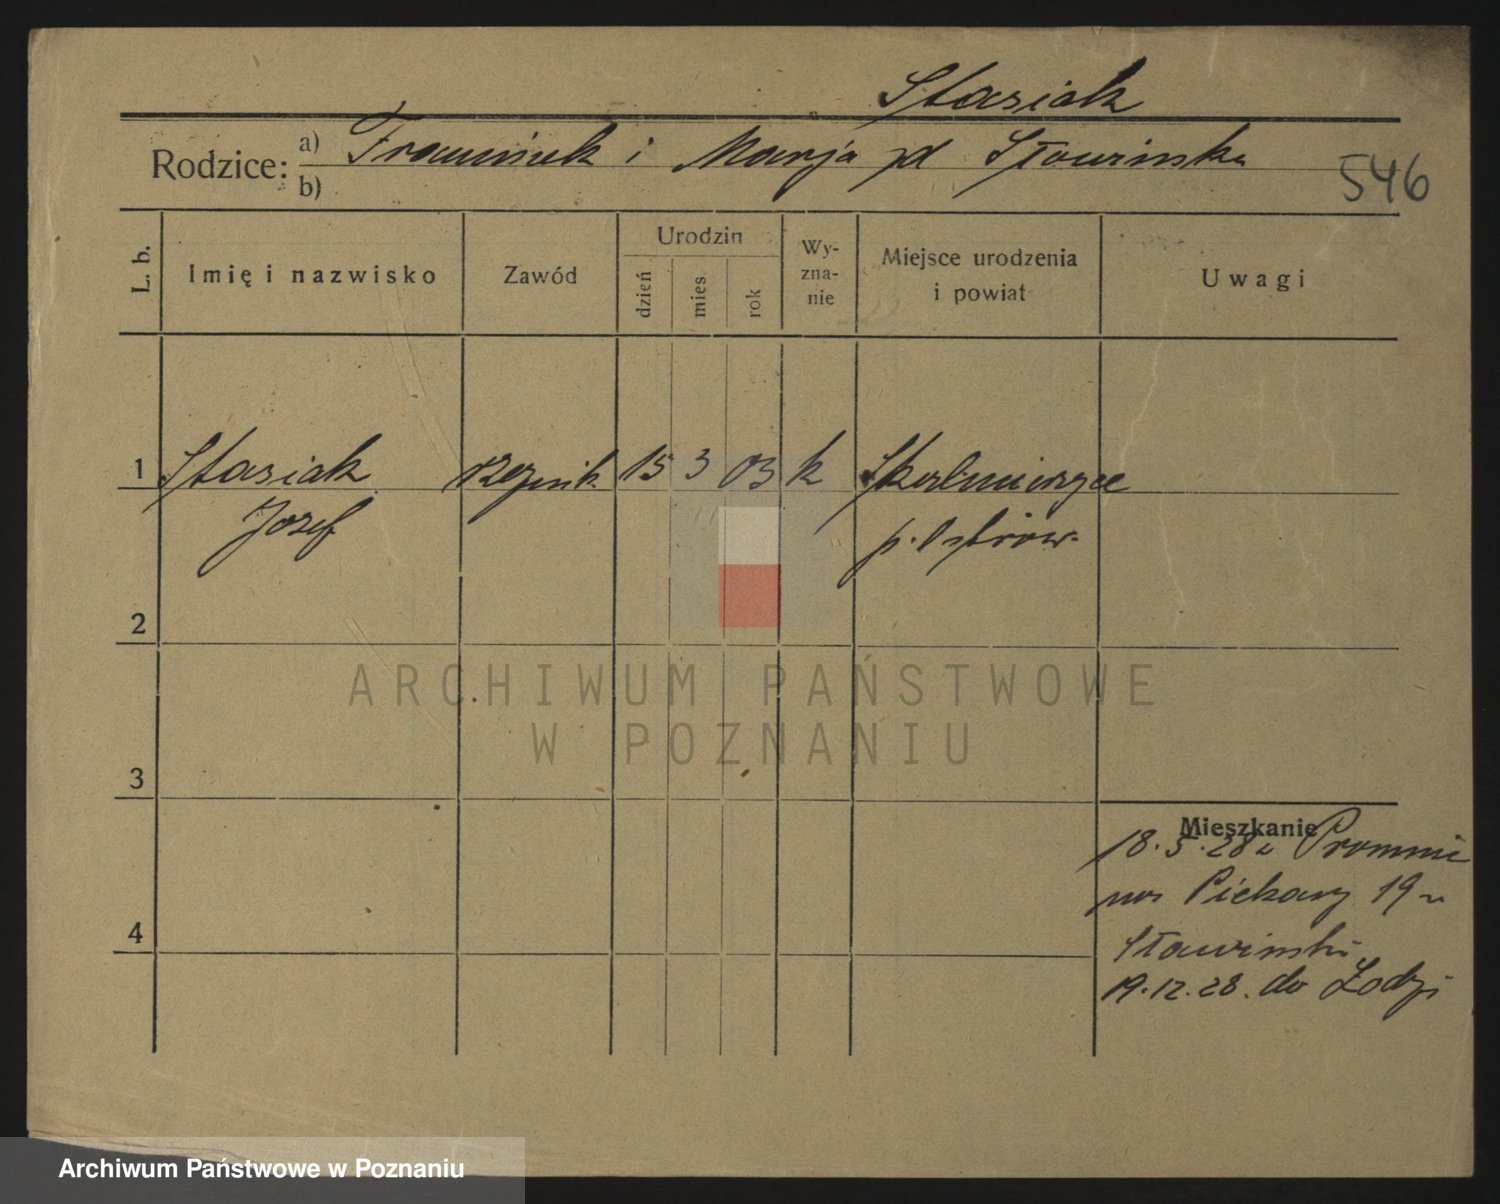 Stasiak
Rodzice: a) Franciszek i Marja zd Sławińska
b)
546
L. b.
Imię i nazwisko
Zawód
Urodzin
dzień
mies.
rok
Wy-
zna-
nie
Miejsce urodzenia
i powiat
Uwagi
1 Stasiak rzeźnik 15 3 03 k Skalmierzyce
Józef p. Ostrów.
2
3
4
Mieszkanie
18.5.28 z
Piekary 19 u
Sławiński
19.12.28. do Łodzi
ARCHIWUM PAŃSTWOWE
W POZNANIU
Archiwum Państwowe w Poznaniu